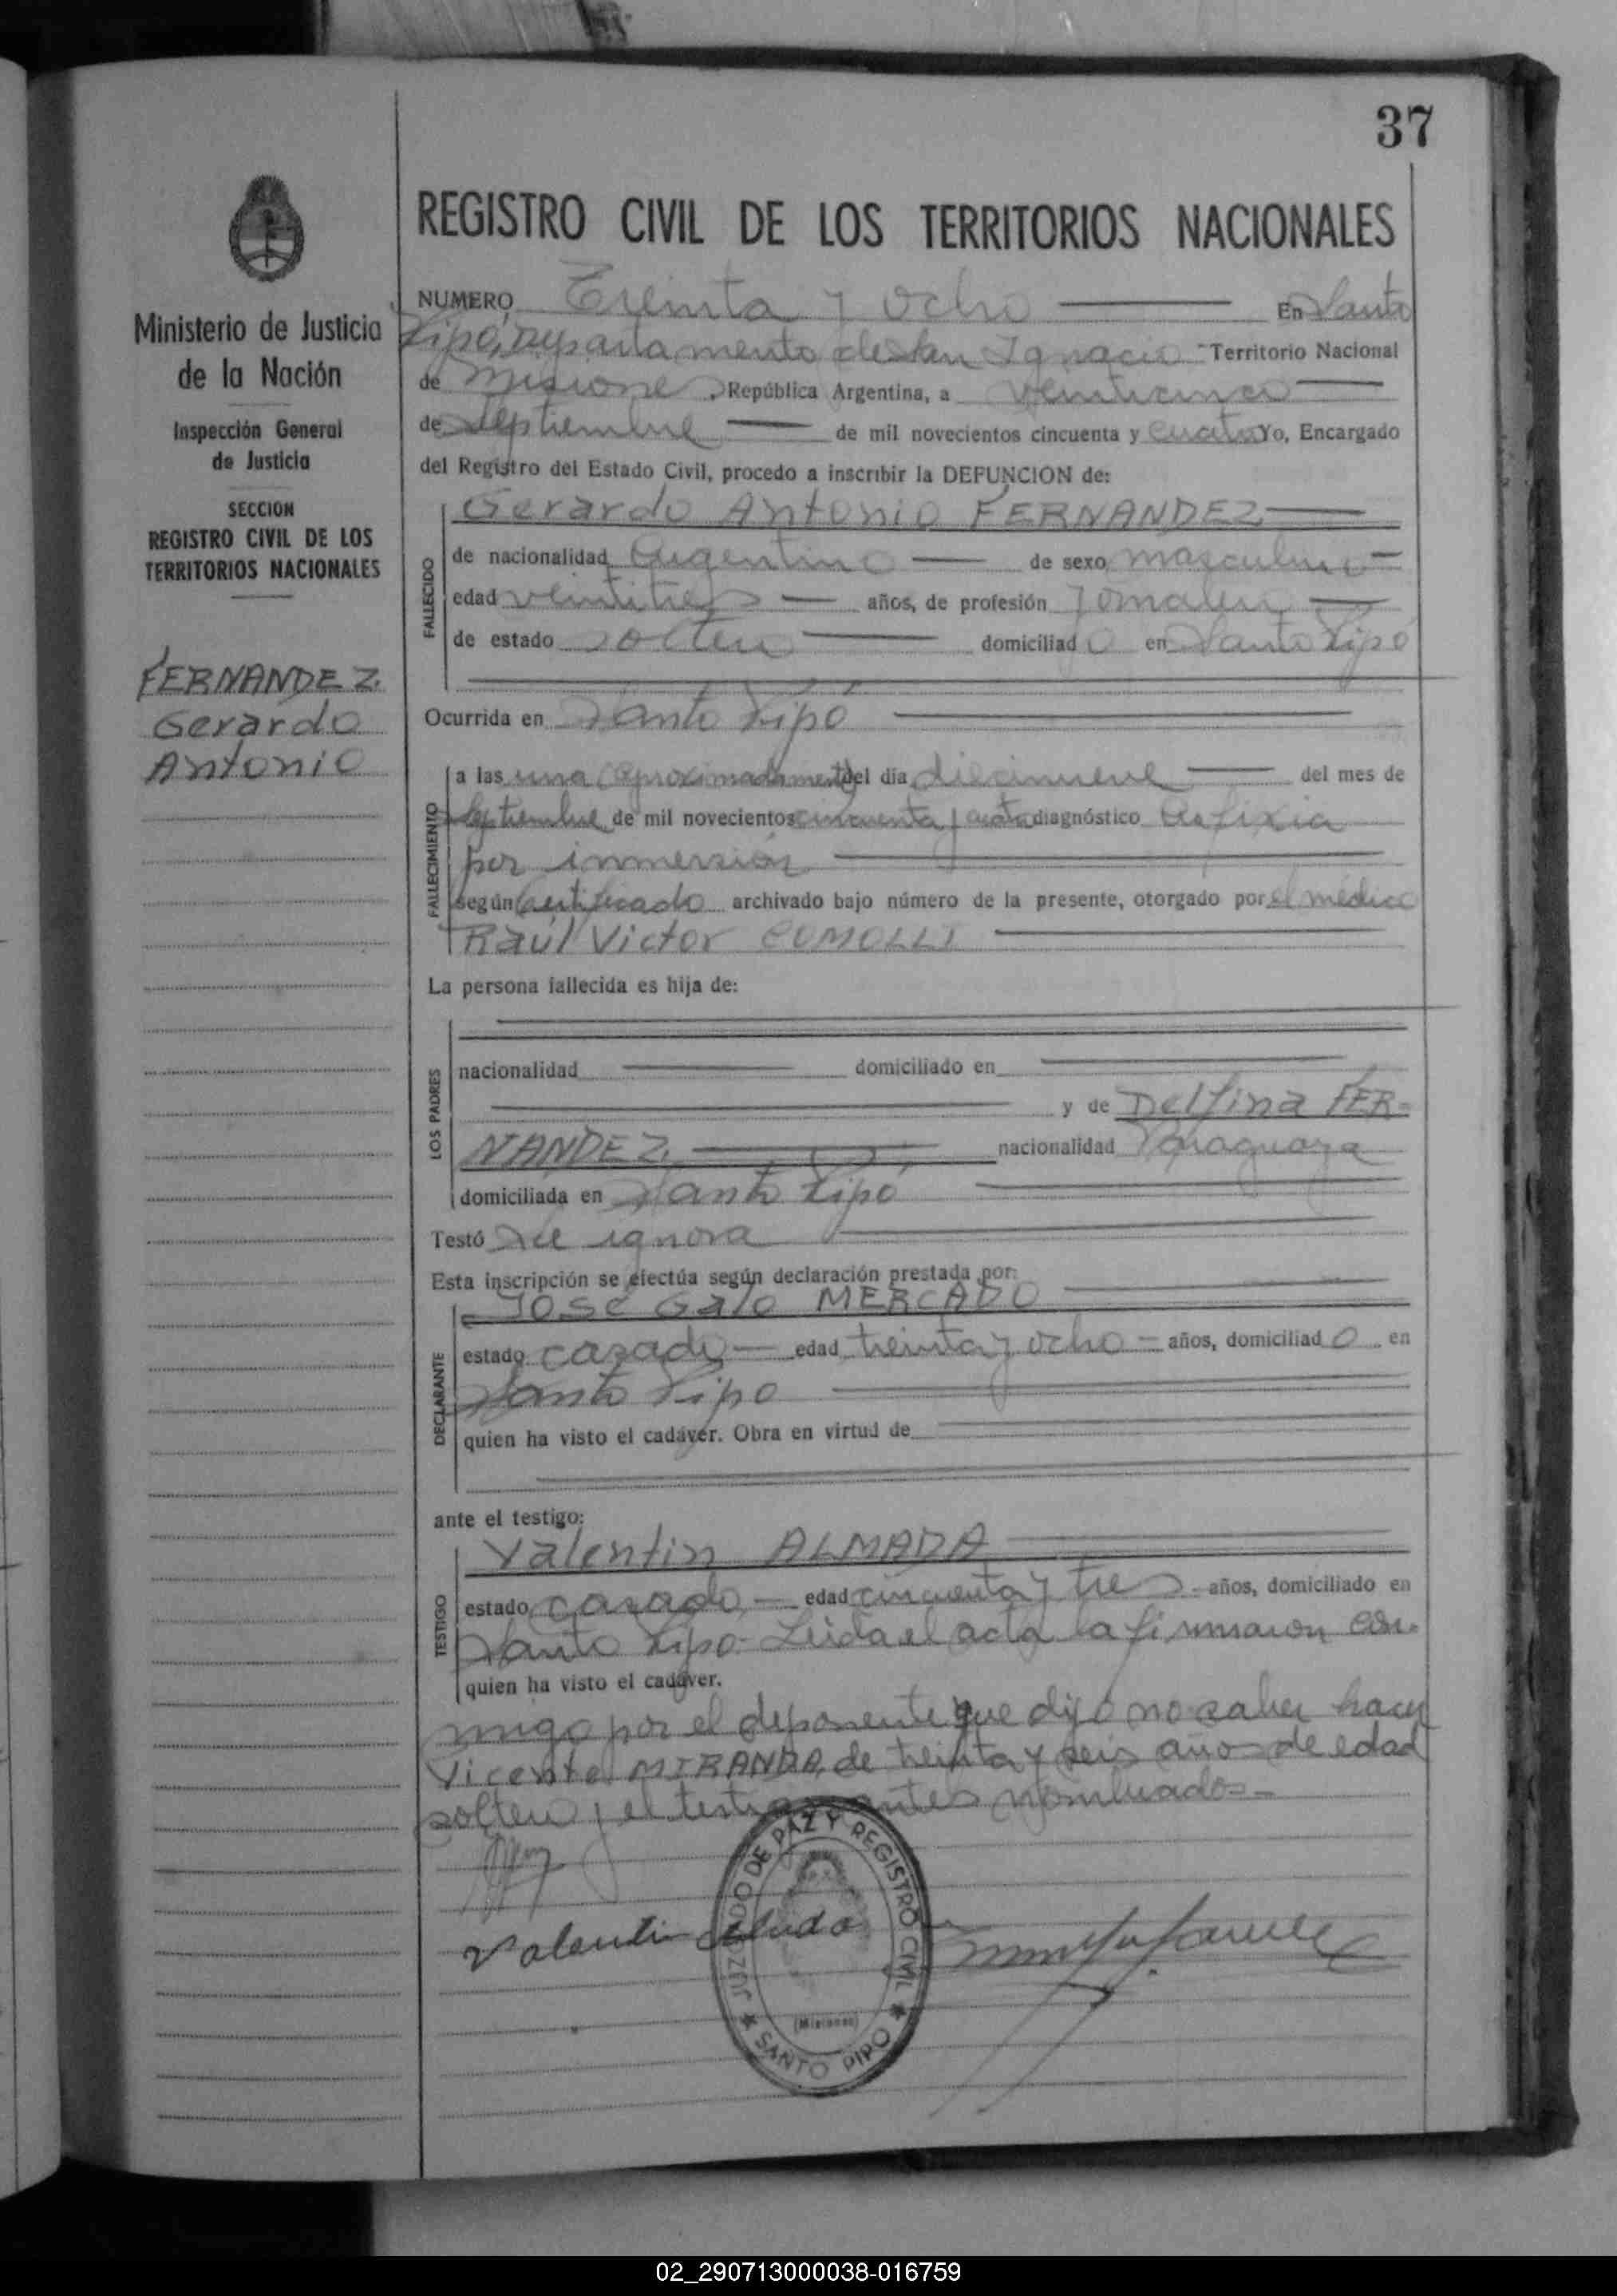 37
REGISTRO CIVIL DE LOS TERRITORIOS NACIONALES
Ministerio de Justicia
de la Nación
Inspección General
de Justicia
SECCION
REGISTRO CIVIL DE LOS
TERRITORIOS NACIONALES
FERNANDEZ.
Gerardo
Antonio
NUMERO Treinta y ocho En Santo
Pipó, Departamento de San Ignacio Territorio Nacional
de Misiones República Argentina, a veinticinco
de septiembre de mil novecientos cincuenta y cuatro Yo, Encargado
del Registro del Estado Civil, procedo a inscribir la DEFUNCION de:
FALLECIDO
Gerardo Antonio FERNANDEZ
de nacionalidad Argentino de sexo masculino
edad veintitres años, de profesión Jornalero
de estado soltero domiciliado en Santo Pipó
Ocurrida en Santo Pipó
FALLECIMIENTO
a las una (aproximadamente) del día diecinueve del mes de
septiembre de mil novecientos cincuenta y cuatro diagnóstico Asfixia
por inmersión
según Certificado archivado bajo número de la presente, otorgado por el médico
Raúl Victor COMOLLI
La persona fallecida es hija de:
LOS PADRES
nacionalidad domiciliado en
y de Delfina FER-
NANDEZ. nacionalidad Paraguaya
domiciliada en Santo Pipó
Testó Se ignora
Esta inscripción se efectúa según declaración prestada por:
DECLARANTE
José Galo MERCADO
estado casado edad treinta y ocho años, domiciliado en
Santo Pipo
quien ha visto el cadáver. Obra en virtud de
ante el testigo:
TESTIGO
Valentin ALMADA
estado casado edad cincuenta y tres años, domiciliado en
Santo Pipo. Leida el acta la firmaron con-
quien ha visto el cadáver.
migo por el deponente que dijo no saber hacer
Vicente MIRANDA, de treinta y seis años de edad
soltero y el testigo antes nombrados
Valentin Almada
JUZGADO DE PAZ Y REGISTRO CIVIL
(Misiones)
SANTO PIPO
02_290713000038-016759